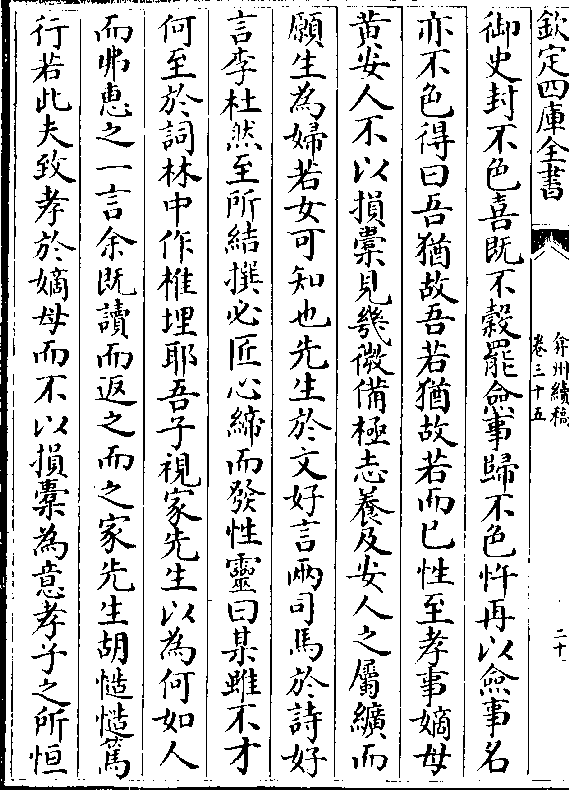 欽定四庫全書
弇州續稿
卷三十五
二十
御史封不色喜既不穀罷僉事歸不色忤再以僉事名
亦不色得曰吾猶故吾若猶故若而已性至孝事嫡母
黄安人不以損橐見幾微備極志養及安人之屬纊而
願生為婦若女可知也先生於文好言兩司馬於詩好
言李杜然至所結撰必匠心締而發性靈曰某雖不才
何至於詞林中作椎埋耶吾子視家先生以為何如人
而弗惠之一言余既讀而返之而之家先生胡慥慥篤
行若此夫致孝於嫡母而不以損橐為意孝子之所恒